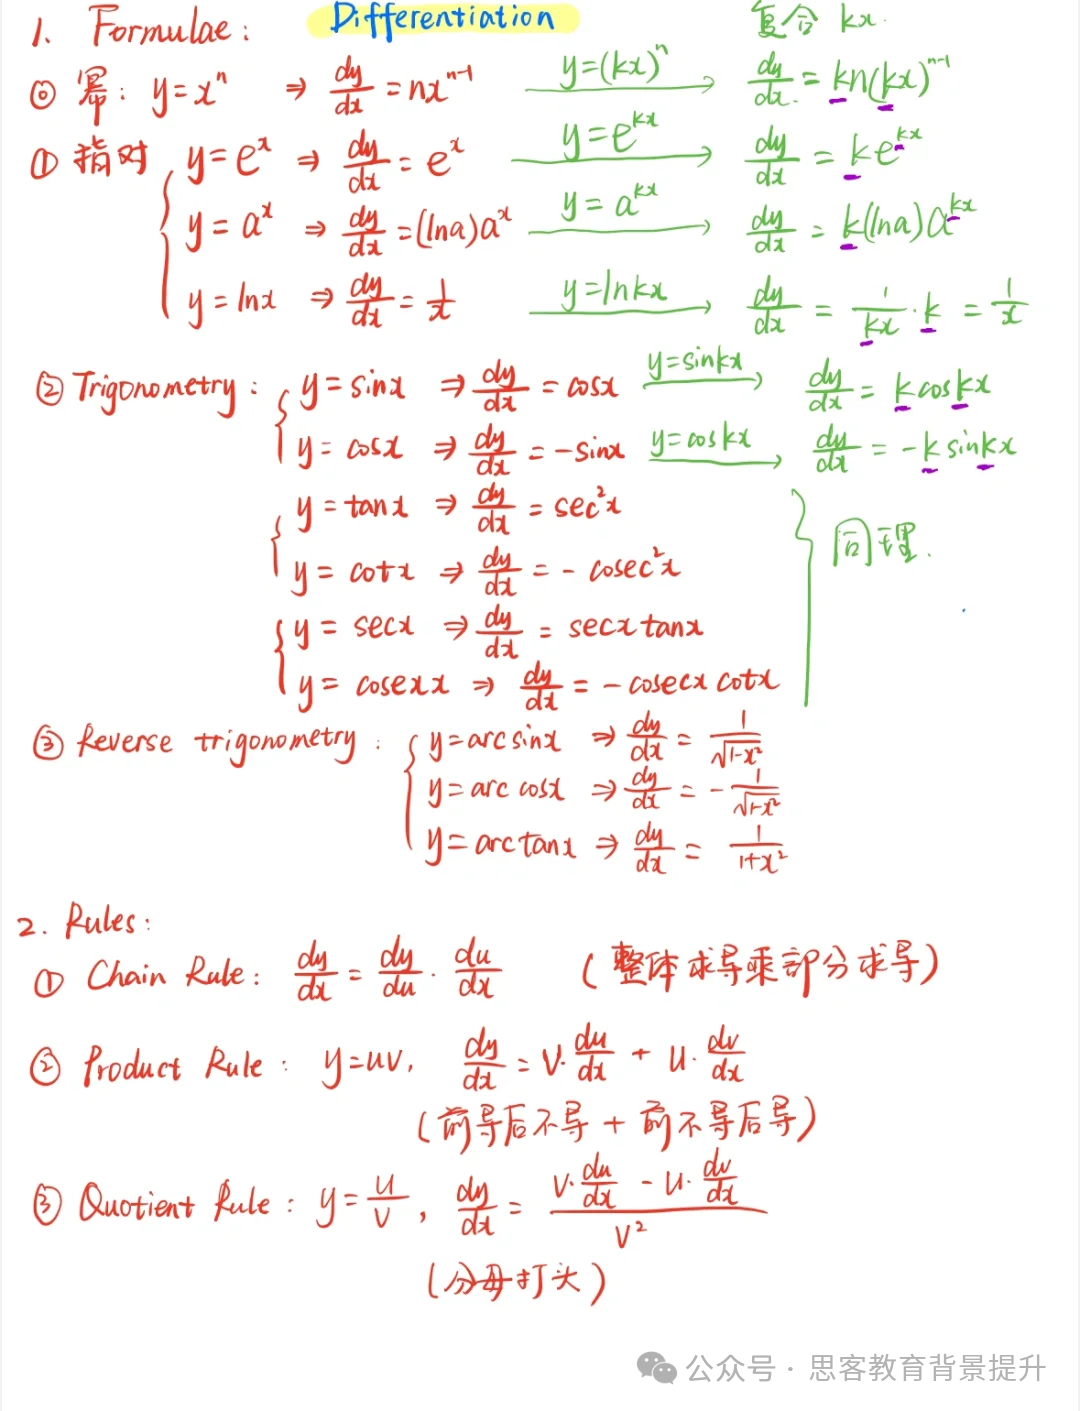 Differentiation
1. Formulae: 复合 kx.
⓪ 幂: y=xⁿ ⇒ dy/dx = nxⁿ⁻¹ y=(kx)ⁿ → dy/dx = kn(kx)ⁿ⁻¹
① 指对 y=eˣ ⇒ dy/dx = eˣ y=e^{kx} → dy/dx = ke^{kx}
y=aˣ ⇒ dy/dx = (lna)aˣ y=a^{kx} → dy/dx = k(lna)a^{kx}
y=lnx ⇒ dy/dx = 1/x y=lnkx → dy/dx = 1/kx · k = 1/x
② Trigonometry: y=sinx ⇒ dy/dx = cosx y=sinkx → dy/dx = k coskx
y=cosx ⇒ dy/dx = -sinx y=coskx → dy/dx = -k sinkx
y=tanx ⇒ dy/dx = sec²x
同理.
y=cotx ⇒ dy/dx = -cosec²x
y=secx ⇒ dy/dx = secxtanx
y=cosexx ⇒ dy/dx = -cosecxcotx
③ Reverse trigonometry: y=arcsinx ⇒ dy/dx = 1/√(1-x²)
y=arccosx ⇒ dy/dx = -1/√(1-x²)
y=arctanx ⇒ dy/dx = 1/(1+x²)
2. Rules:
① Chain Rule: dy/dx = dy/du · du/dx (整体求导乘部分求导)
② Product Rule: y=uv, dy/dx = v·du/dx + u·dv/dx
(前导后不导 + 前不导后导)
③ Quotient Rule: y=u/v, dy/dx = (v·du/dx - u·dv/dx)/v²
(分母打头)
公众号 · 思客教育背景提升